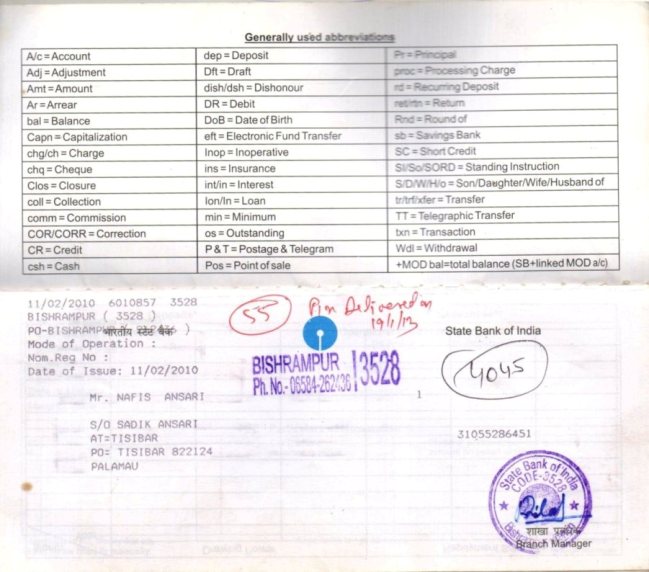 Generally used abbreviations
A/c = Account
dep = Deposit
Pr = Principal
Adj = Adjustment
Dft = Draft
proc = Processing Charge
Amt = Amount
dish/dsh = Dishonour
rd = Recurring Deposit
Ar = Arrear
DR = Debit
ret/rtn = Return
bal = Balance
DoB = Date of Birth
Rnd = Round of
Capn = Capitalization
eft = Electronic Fund Transfer
sb = Savings Bank
chg/ch = Charge
Inop = Inoperative
SC = Short Credit
chq = Cheque
ins = Insurance
SI/So/SORD = Standing Instruction
Clos = Closure
int/in = Interest
S/D/W/H/o = Son/Daughter/Wife/Husband of
coll = Collection
lon/ln = Loan
tr/trf/xfer = Transfer
comm = Commission
min = Minimum
TT = Telegraphic Transfer
COR/CORR = Correction
os = Outstanding
txn = Transaction
CR = Credit
P & T = Postage & Telegram
Wdl = Withdrawal
csh = Cash
Pos = Point of sale
+MOD bal=total balance (SB+linked MOD a/c)
11/02/2010 6010857 3528
55
Pin Delivered on
19/1/13
BISHRAMPUR ( 3528 )
PO-BISHRAMPUR
भारतीय स्टेट बैंक
State Bank of India
Mode of Operation :
Nom.Reg No :
Date of Issue: 11/02/2010
BISHRAMPUR
Ph. No.- 06584-262436
3528
4045
Mr. NAFIS ANSARI
1
S/O SADIK ANSARI
AT=TISIBAR
PO= TISIBAR 822124
PALAMAU
31055286451
State Bank of India
CODE-3528
शाखा प्रबंधक
Branch Manager